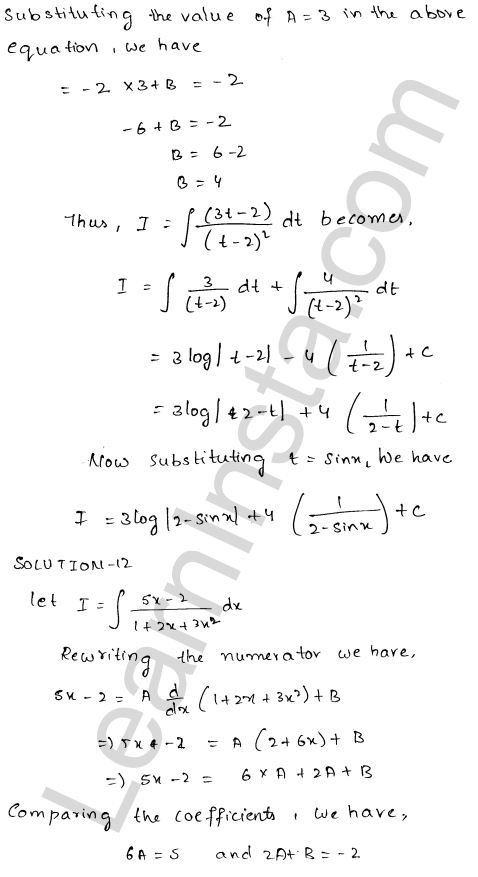 Substituting the value of A = 3 in the above
equation, we have
= -2 × 3 + B = -2
-6 + B = -2
B = 6 - 2
B = 4
Thus, I = ∫ (3t-2)/(t-2)² dt becomes,
I = ∫ 3/(t-2) dt + ∫ 4/(t-2)² dt
= 3 log|t-2| - 4 (1/(t-2)) + c
= 3 log|2-t| + 4 (1/(2-t)) + c
Now substituting t = sinx, we have
I = 3 log|2-sinx| + 4 (1/(2-sinx)) + c
SOLUTION-12
let I = ∫ (5x-2)/(1+2x+3x²) dx
Rewriting the numerator we have,
5x - 2 = A d/dx (1+2x+3x²) + B
=) 5x - 2 = A (2+6x) + B
=) 5x - 2 = 6xA + 2A + B
Comparing the coefficients, we have,
6A = 5 and 2A + B = -2
LearnInsta.com